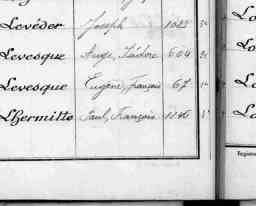 Levéder Joseph 1023
Levesque Ange, Isidore 604
Levesque Eugène, François 67
Lhermitte Paul, François 1146